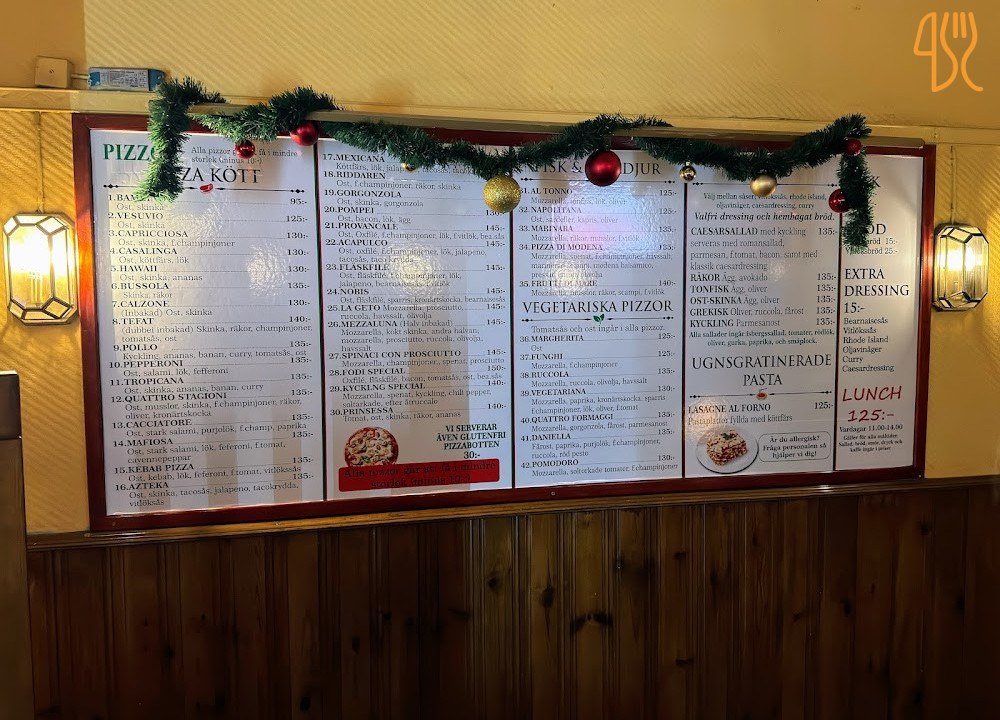 PIZZ
Alla pizzor få i mindre
storlek (minus 10:-)
ZA KÖTT
95:-
Ost, skinka
2.VESUVIO 125:-
Ost, skinka
3.CAPRICCIOSA 130:-
Ost, skinka, f.champinjoner
4.CASALINGA 130:-
Ost, köttfärs, lök
5.HAWAII 130:-
Ost, skinka, ananas
6.BUSSOLA 135:-
Skinka, räkor
7.CALZONE 130:-
(Inbakad) Ost, skinka
8.TEFAT 140:-
(dubbel inbakad) Skinka, räkor, champinjoner,
tomatsås, ost
9.POLLO 135:-
Kyckling, ananas, banan, curry, tomatsås, ost
10.PEPPERONI 135:-
Ost, salami, lök, fefferoni
11.TROPICANA 135:-
Ost, skinka, ananas, banan, curry
12.QUATTRO STAGIONI 135:-
Ost, musslor, skinka, f.champinjoner, räkor,
oliver, kronärtskocka
13.CACCIATORE 135:-
Ost, stark salami, purjolök, f.champ, paprika
14.MAFIOSA 135:-
Ost, stark salami, lök, feferoni, f.tomat,
cayennepeppar
15.KEBAB PIZZA 135:-
Ost, kebab, lök, feferoni, f.tomat, vitlökssås
16.AZTEKA 135:-
Ost, skinka, tacosås, jalapeno, tacokrydda,
vitlöksås
17.MEXICANA
Köttfärs, lök, jalapeno, tacosås,
18.RIDDAREN
Ost, f.champinjoner, räkor, skinka
19.GORGONZOLA
Ost, skinka, gorgonzola
20.POMPEI
Ost, bacon, lök, ägg
21.PROVANCALE 145:-
Ost, Oxfilé, f.champinjoner, lök, f.vitlök, bea.sås
22.ACAPULCO 145:-
Ost, oxfilé, f.champinjoner, lök, jalapeno,
tacosås, tacokrydda
23.FLÄSKFILÉ 145:-
jalapeno, bearnaisesås, vitlök
24.NOBIS 145:-
Ost, fläskfilé, sparris, kronärtskocka, bearnaisesås
25.LA GETO Mozzarella, prosciutto, 145:-
ruccola, havssalt, olivolja
26.MEZZALUNA (Halv inbakad) 145:-
Mozzarella, kokt skinka, andra halvan:
mozzarella, prosciutto, ruccola, olivolja,
havssalt
27.SPINACI CON PROSCIUTTO 145:-
Mozzarella, champinjoner, spenat, prosciutto
28.FODI SPECIAL 150:-
Oxfilé, fläskfilé, bacon, tomatsås, ost, bea.sås
29.KYCKLNG SPECIAL 140:-
Mozzarella, spenat, kyckling, chili pepper,
soltorkade, efter åt:ruccalo
30.PRINSESSA 140:-
Tomat, ost, skinka, räkor, ananas
VI SERVERAR
ÄVEN GLUTENFRI
PIZZABOTTEN
30:-
Alla pizzor går att få i mindre
storlek (minus 10:-)
FISK & DJUR
31.AL TONNO 125:-
Mozzarella, tonfisk, lök, oliver
32.NAPOLITANA 125:-
Ost, sardeller, kapris, oliver
33.MARINARA 135:-
Mozzarella, räkor, musslor, f.vitlök
34.PIZZA DI MODENA
Mozzarella, spenat, f.champinjoner, havssalt,
35.FRUTTI DI MARE 140:-
Mozzarella, musslor, räkor, scampi, f.vitlök
VEGETARISKA PIZZOR
Tomatsås och ost ingår i alla pizzor.
36.MARGHERITA
Ost
37.FUNGHI
Mozzarella, f.champinjoner
38.RUCCOLA
Mozzarella, ruccola, olivolja, havssalt
39.VEGETARIANA
Mozzarella, paprika, kronärtskocka, sparris
f.champinjoner, lök, oliver, f.tomat
40.QUATTRO FORMAGGI
Mozzarella, gorgonzola, fårost, parmesan
41.DANIELLA
Fårost, paprika, purjolök, f.champinjoner,
ruccola, röd pesto
42.POMODORO
Mozzarella, soltorkade tomater, f.champinjoner
Välj mellan såser: vitlökssås, rhode island,
oljavinäger, caesardressing, curry
Valfri dressing och hembagat bröd.
CAESARSALLAD med kyckling 135:-
serveras med romansallad,
parmesan, f.tomat, bacon, samt med
klassik caesardressing
RÄKOR Ägg, avokado 135:-
TONFISK Ägg, oliver 135:-
OST-SKINKA Ägg, oliver 135:-
GREKISK Oliver, ruccola, fårost 135:-
KYCKLING Parmesanost 135:-
Alla sallader ingår isbergssallad, tomater, rödlök,
oliver, gurka, paprika, och smålpeck.
UGNSGRATINERADE
PASTA
LASAGNE AL FORNO 125:-
Pastaplattor fyllda med köttfärs
Är du allergisk?
Fråga personalen så
hjälper vi dig!
15:-
Vitlöksbröd 25:-
EXTRA
DRESSING
15:-
Bearnaisesås
Vitlökssås
Rhode Island
Oljavinäger
Curry
Caesardressing
LUNCH
125:-
Vardagar 11.00-14.00
Gäller för alla måltider.
Sallad, bröd, smör, dryck och
kaffe ingår i priset